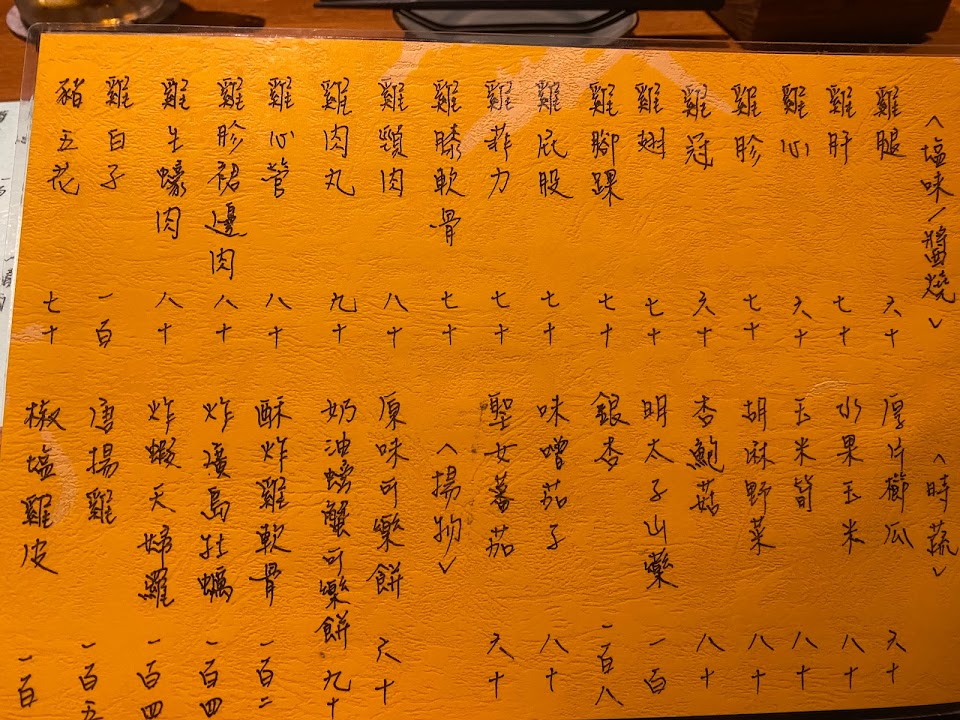 〈塩味/醬燒〉
雞腿 六十
雞肝 七十
雞心 六十
雞胗 七十
雞冠 六十
雞翅 七十
雞腳踝 七十
雞屁股 七十
雞菲力 七十
雞膝軟骨 七十
雞頸肉 八十
雞肉丸 九十
雞心管 八十
雞胗裙邊肉 八十
雞生蠔肉 八十
雞白子 一百
豬五花 七十
〈時蔬〉
厚片櫛瓜 六十
水果玉米 八十
玉米筍 八十
胡麻野菜 八十
杏鮑菇 八十
明太子山藥 一百
銀杏 一百八
味噌茄子 八十
聖女蕃茄 六十
〈揚物〉
原味可樂餅 六十
奶油螃蟹可樂餅 九十
酥炸雞軟骨 一百二
炸廣島牡蠣 一百四
炸蝦天婦羅 一百四
唐揚雞 一百五
椒塩雞皮 一百